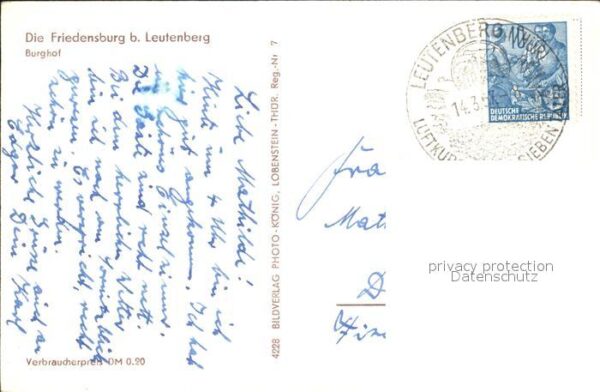 Die Friedensburg b. Leutenberg
Burghof
Liebe Mathilde!
Heute um 4 Uhr bin ich
hier gut angekommen. Ich hab
ein schönes Einzelzimmer.
Die Gäste sind recht nett.
Bei dem herrlichen Wetter
bin ich noch am
gewesen. Es verspricht, recht
schön zu werden.
Herzliche Grüße auch an
Dein Karl
Verbraucherpreis DM 0.20
4228 BILDVERLAG PHOTO-KÖNIG, LOBENSTEIN-THÜR. Reg.-Nr. 7
LEUTENBERG (THÜR)
14.3.5
LUFTKUR SIEBEN
DEUTSCHE
DEMOKRATISCHE REPUBLIK
Fra
Mat
D
privacy protection
Datenschutz